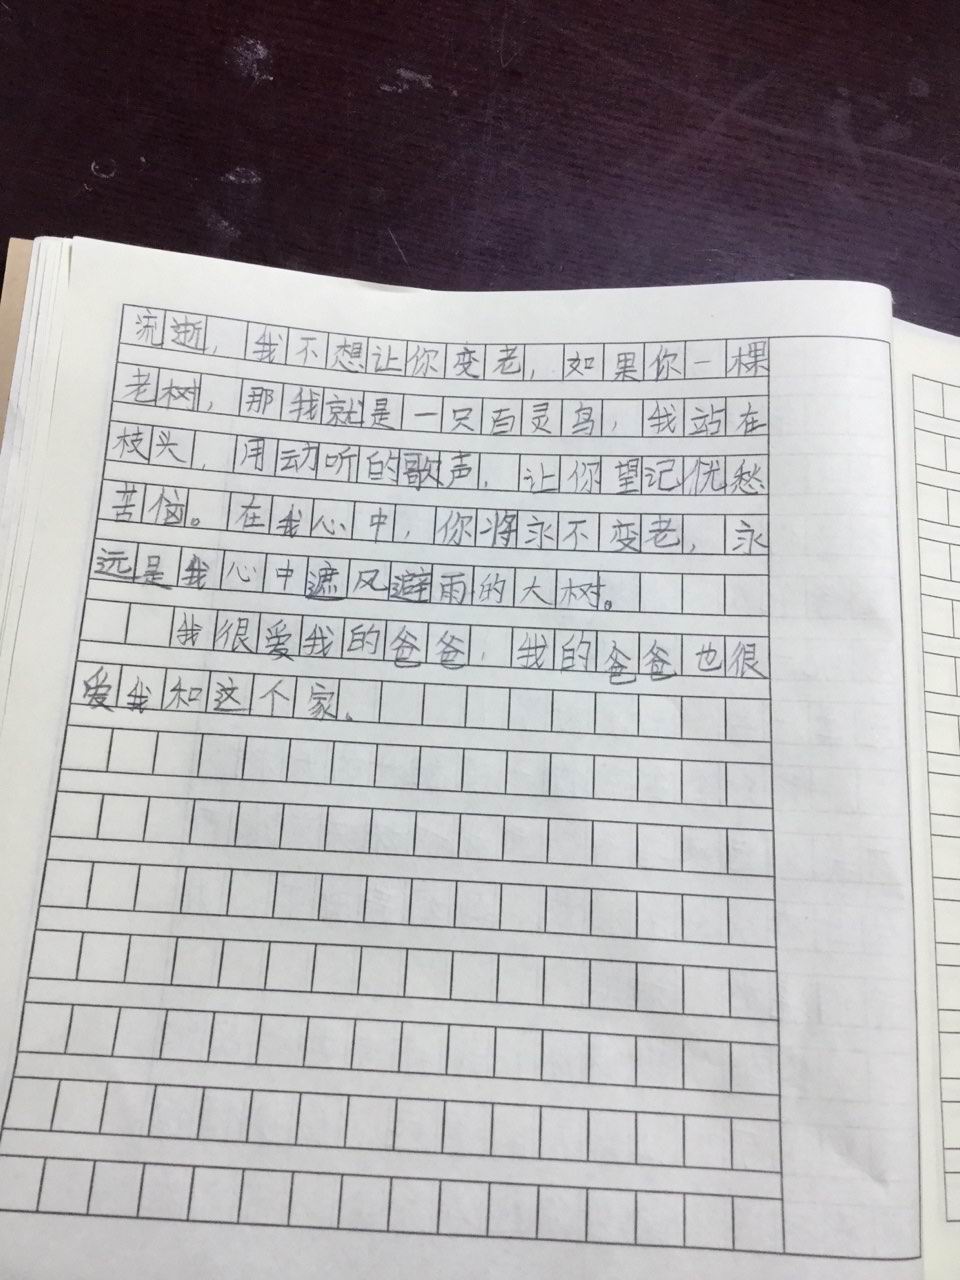 流逝，我不想让你变老，如果你一棵
老树，那我就是一只百灵鸟，我站在
枝头，用动听的歌声，让你望记忧愁
苦恼。在我心中，你将永不变老，永
远是我心中遮风避雨的大树。
我很爱我的爸爸，我的爸爸也很
爱我和这个家。